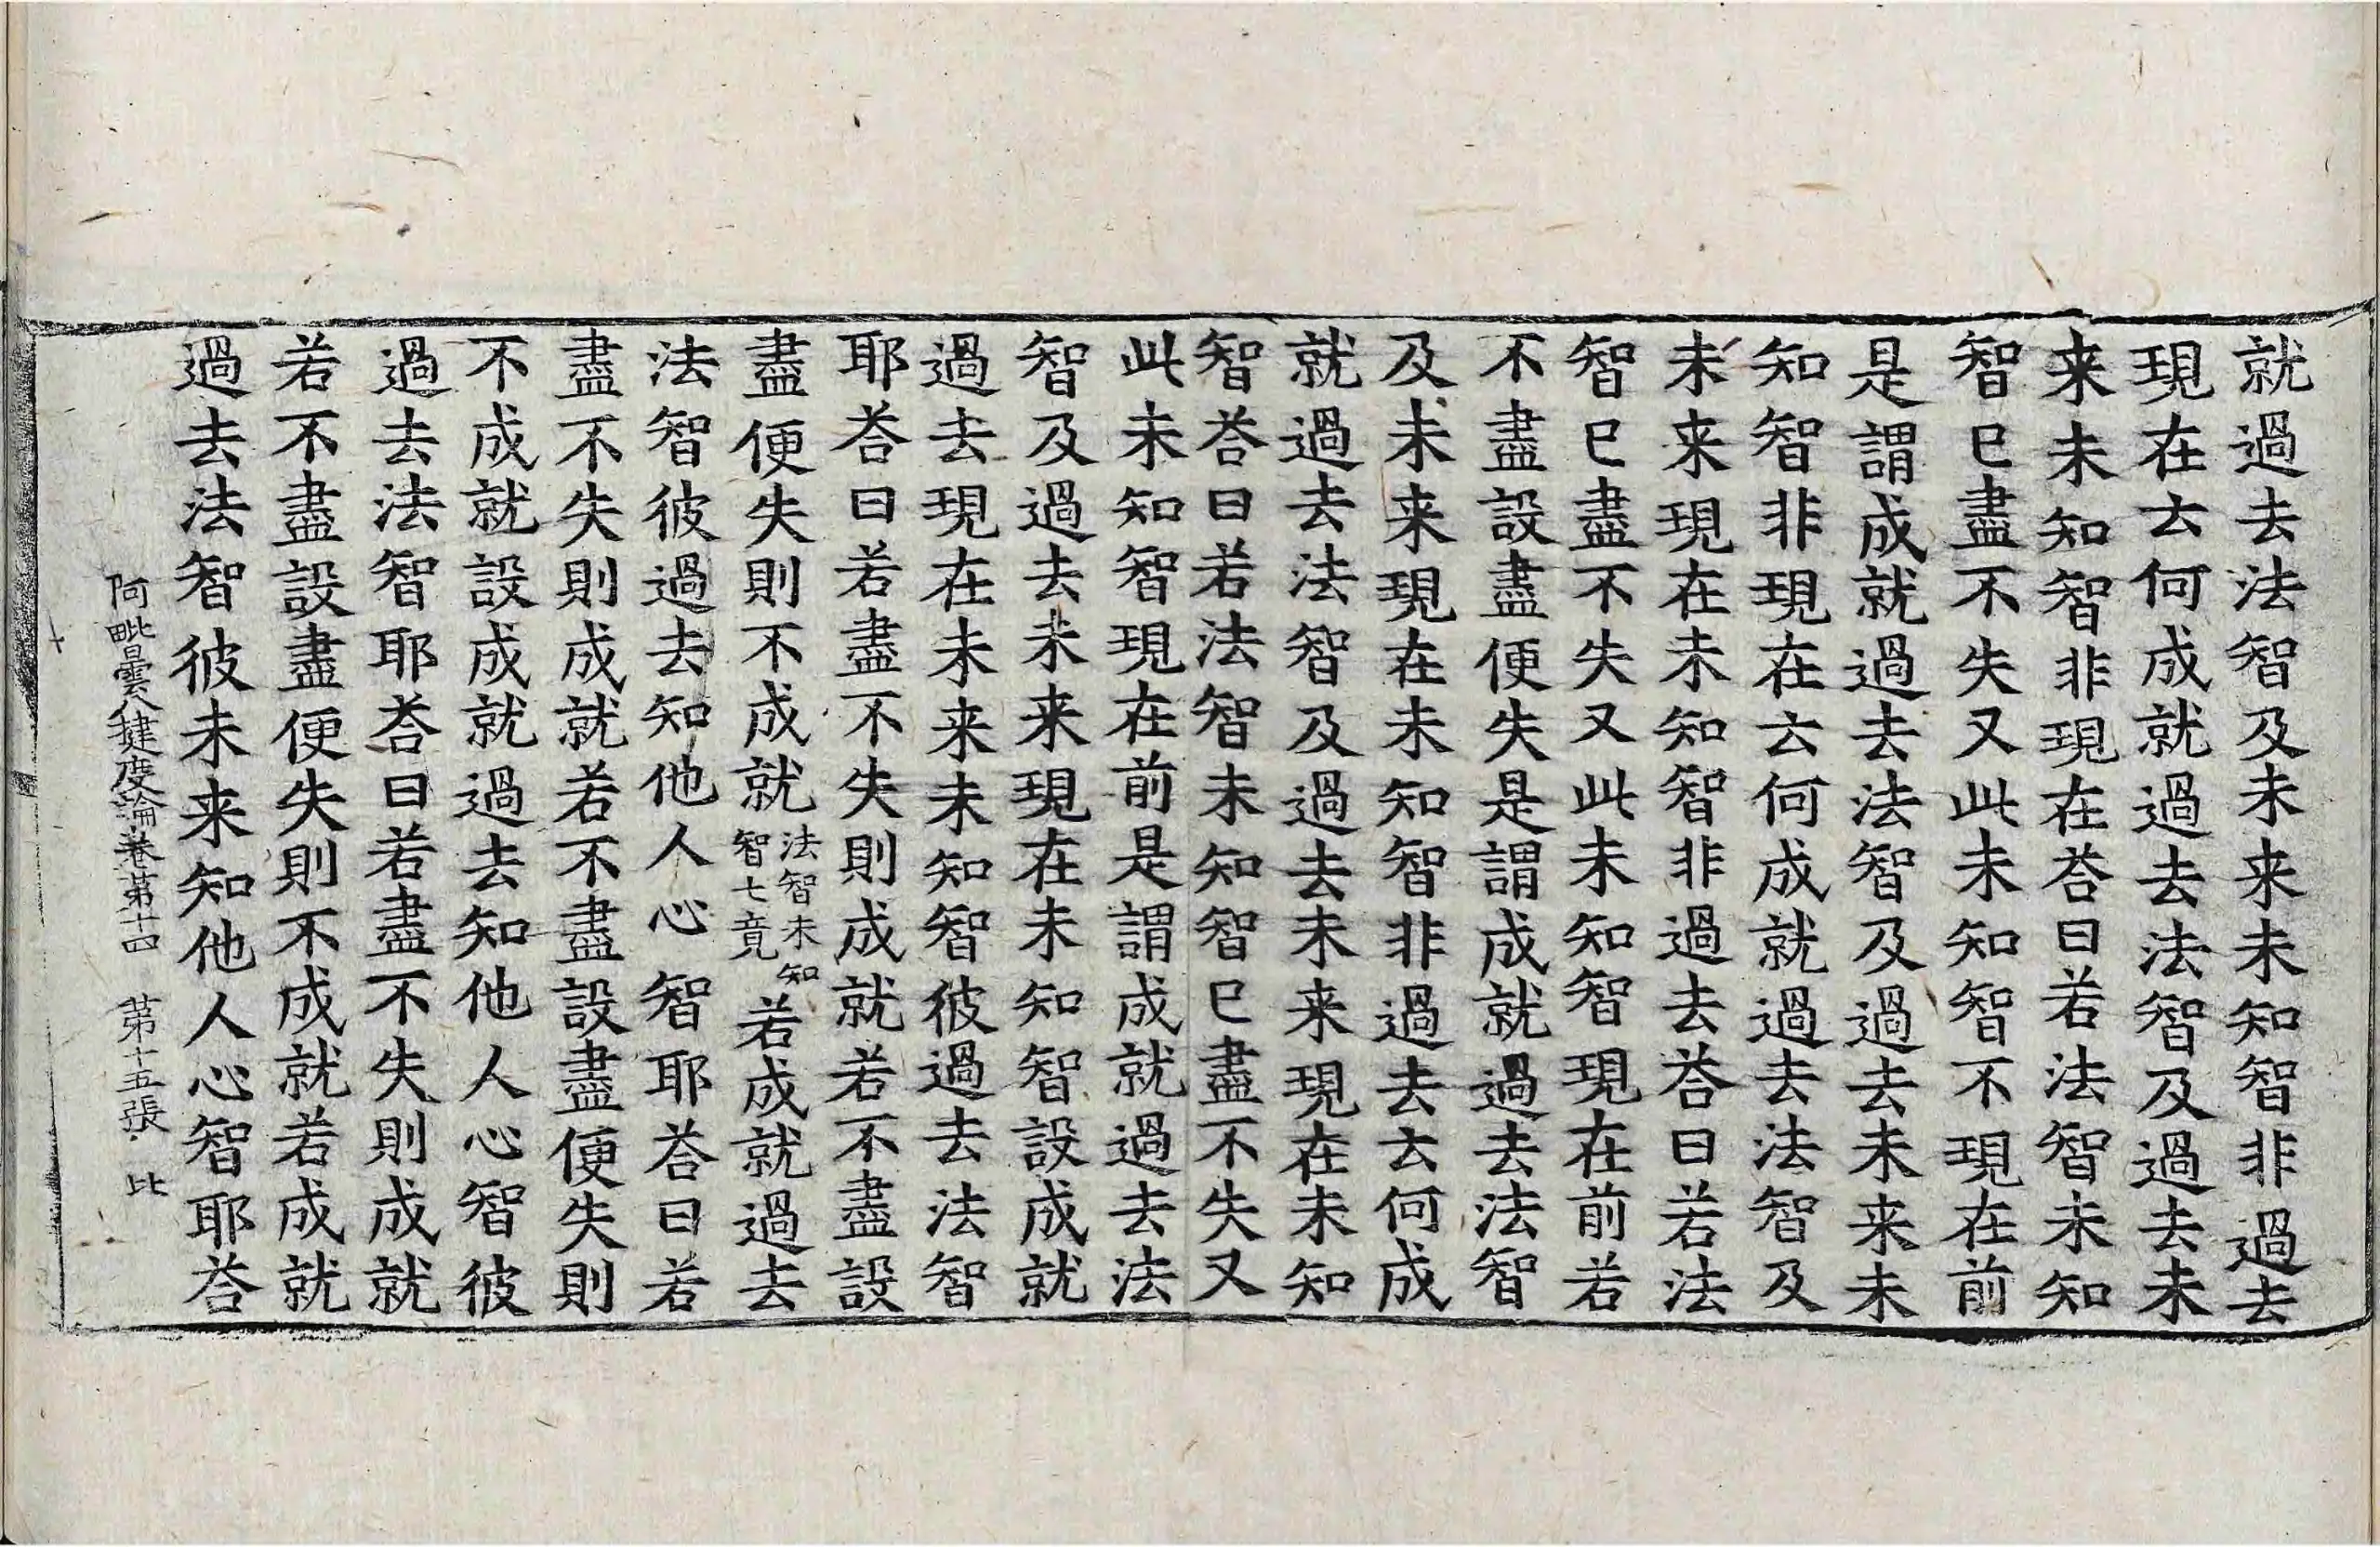 就過去法智及未来未知智非過去
現在云何成就過去法智及過去未
来未知智非現在荅曰若法智未知
智已盡不失又此未知智不現在前
是謂成就過去法智及過去未来未
知智非現在云何成就過去法智及
未来現在未知智非過去荅曰若法
智已盡不失又此未知智現在前若
不盡設盡便失是謂成就過去法智
及未来現在未知智非過去云何成
就過去法智及過去未来現在未知
智荅曰若法智未知智已盡不失又
此未知智現在前是謂成就過去法
智及過去未来現在未知智設成就
過去現在未来未知智彼過去法智
耶荅曰若盡不失則成就若不盡設
盡便失則不成就法智未知智七竟若成就過去
法智彼過去知他人心智耶荅曰若
盡不失則成就若不盡設盡便失則
不成就設成就過去知他人心智彼
過去法智耶荅曰若盡不失則成就
若不盡設盡便失則不成就若成就
過去法智彼未来知他人心智耶荅
阿毗曇八揵度論卷第十四 第十五張 比